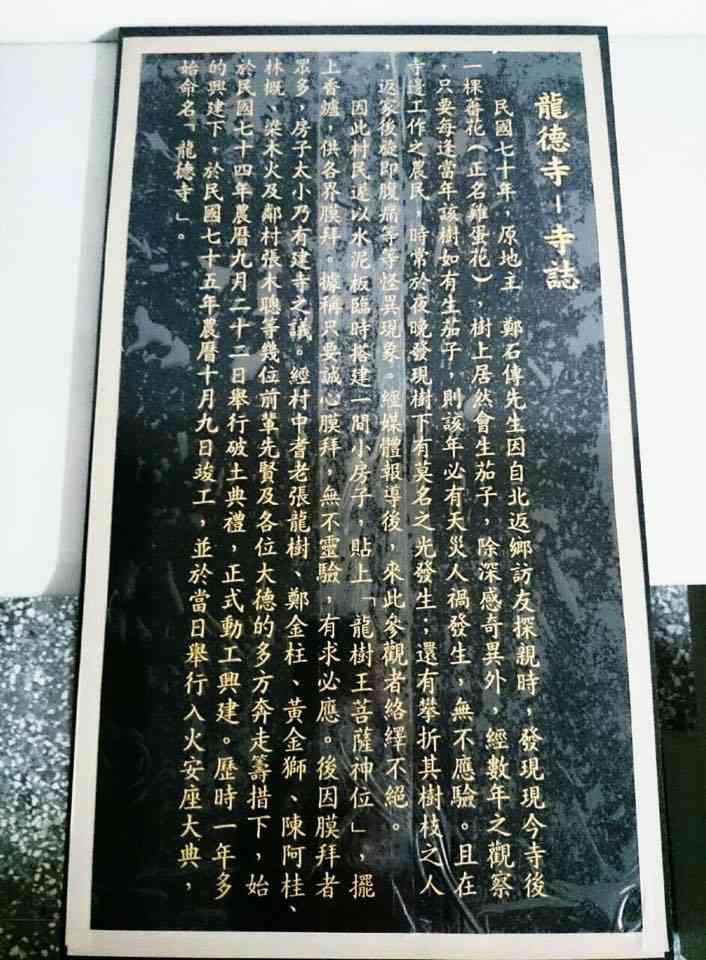 龍德寺－寺誌
民國七十年，原地主　鄭石傳先生因自北返鄉訪友探親時，發現現今寺後
一棵蕃花（正名雞蛋花），樹上居然會生茄子，除深感奇異外，經數年之觀察
，只要每逢當年該樹如有生茄子，則該年必有天災人禍發生，無不應驗。且在
寺邊工作之農民，時常於夜晚發現樹下有莫名之光發生；還有攀折其樹枝之人
，返家後旋即腹痛等等怪異現象。經媒體報導後，來此參觀者絡繹不絕。
因此村民遂以水泥板臨時搭建一間小房子，貼上「龍樹王菩薩神位」，擺
上香爐，供各界膜拜。據稱只要誠心膜拜，無不靈驗，有求必應。後因膜拜者
眾多，房子太小乃有建寺之議。經村中耆老張龍樹、鄭金柱、黃金獅、陳阿桂、
林概、梁木火及鄰村張木聰等幾位前輩先賢及各位大德的多方奔走籌措下，始
於民國七十四年農曆九月二十二日舉行破土典禮，正式動工興建。歷時一年多
的興建下，於民國七十五年農曆十月九日竣工，並於當日舉行入火安座大典，
始命名「龍德寺」。